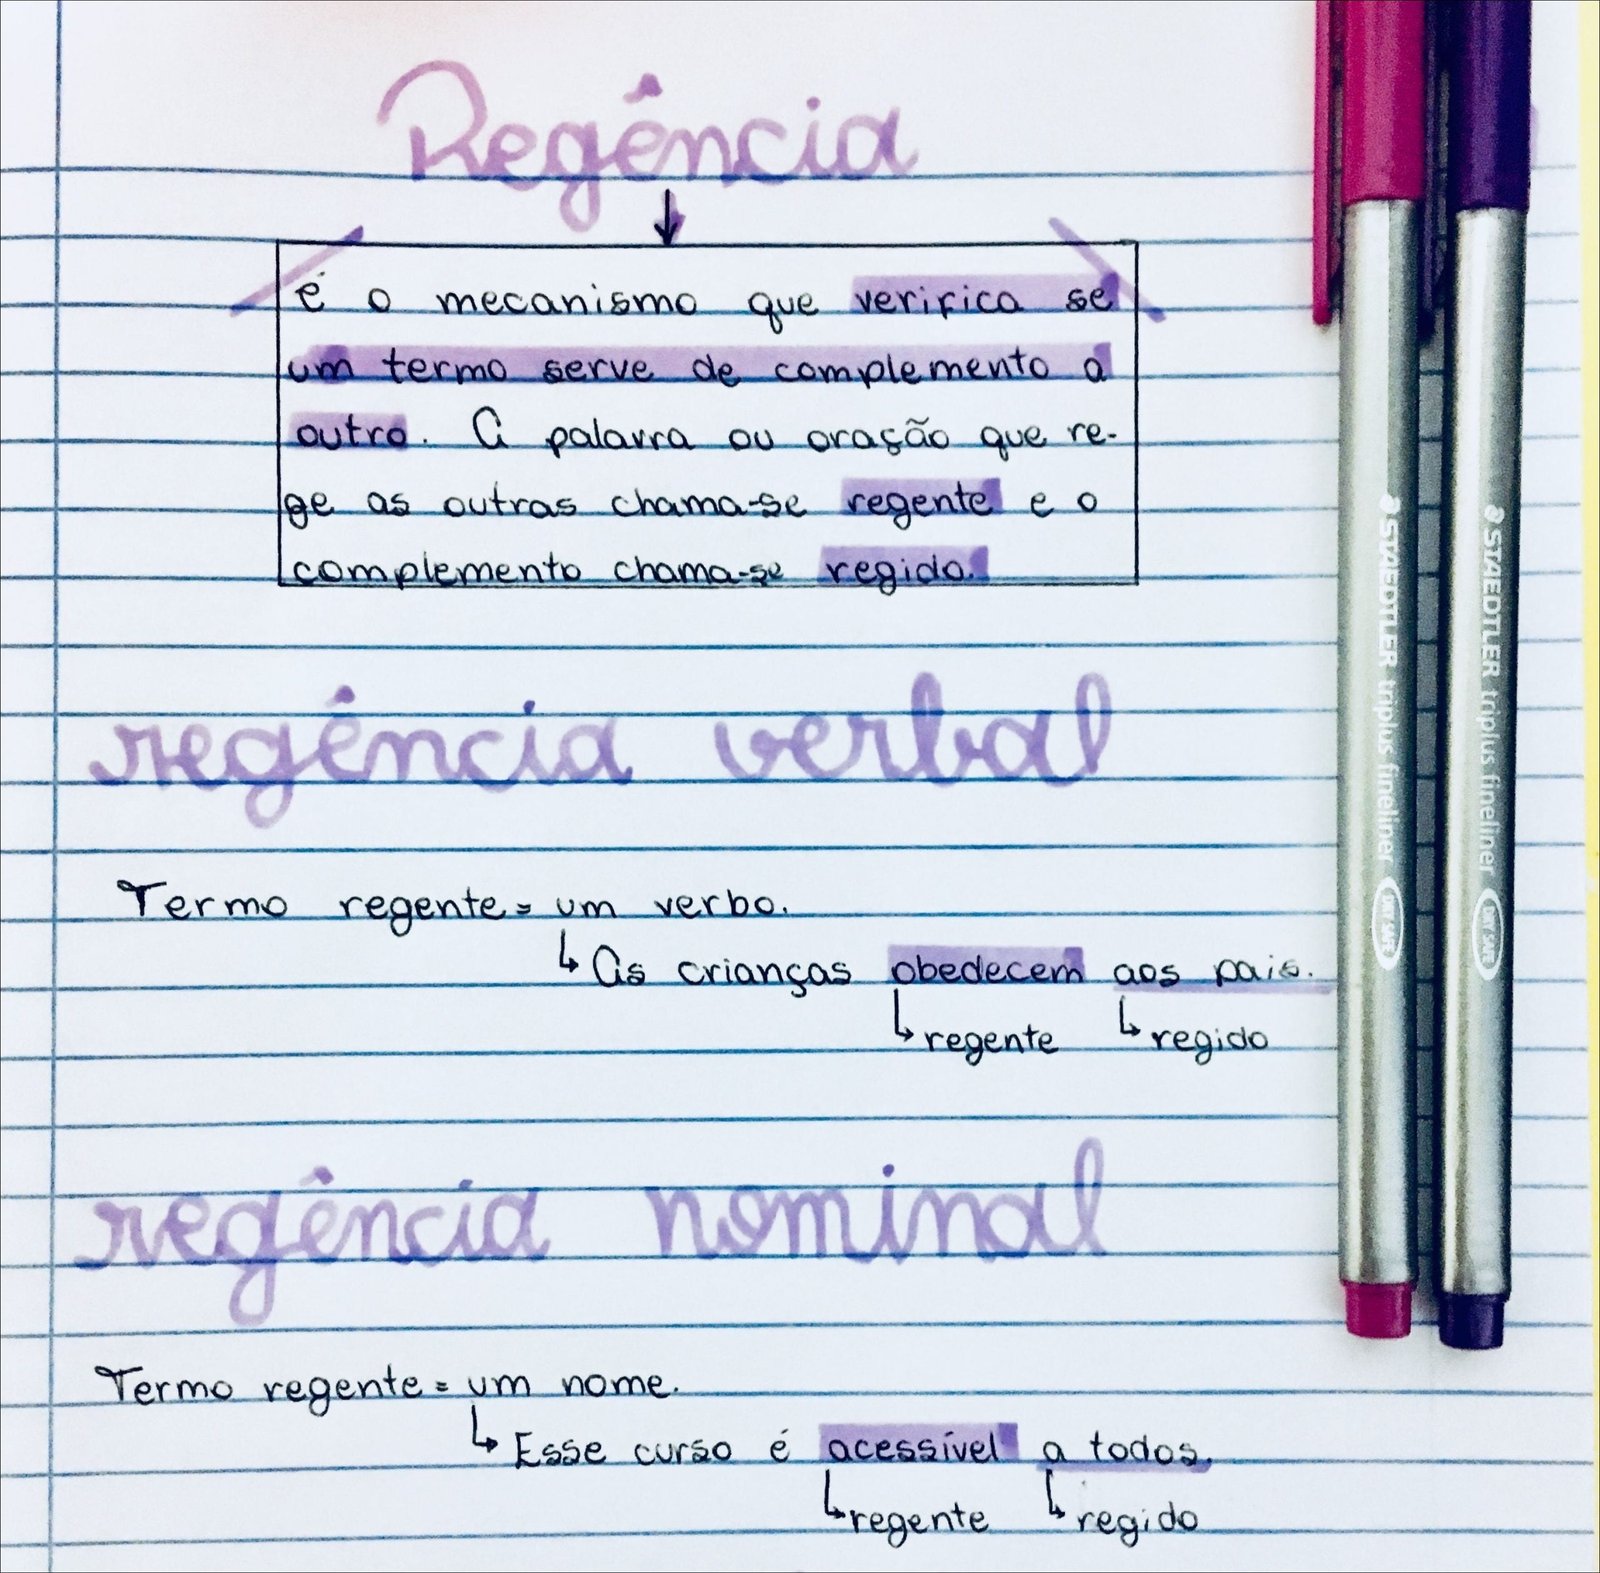 Regência
é o mecanismo que verifica se
um termo serve de complemento a
outro. A palavra ou oração que re-
ge as outras chama-se regente e o
complemento chama-se regido.
regência verbal
Termo regente = um verbo.
As crianças obedecem aos pais.
regente regido
regência nominal
Termo regente = um nome.
Esse curso é acessível a todos.
regente regido
STAEDTLER triplus fineliner DRY SAFE
STAEDTLER triplus fineliner DRY SAFE